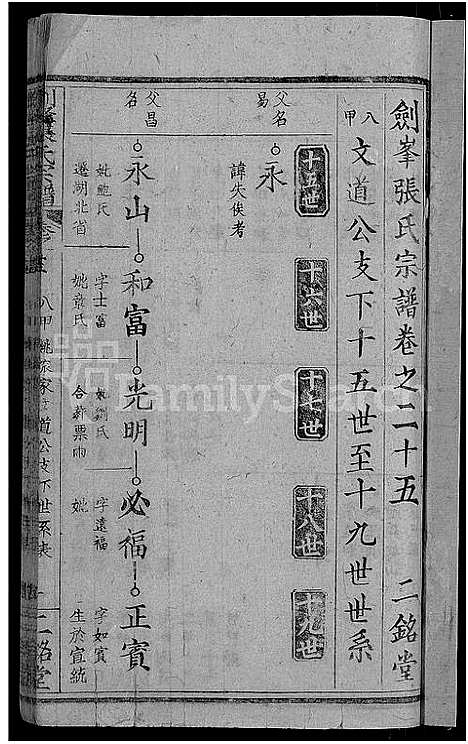 劍峯張氏宗譜卷之二十五 二銘堂
八甲 文道公支下十五世至十九世世系
十五世 十六世 十七世 十八世 十九世
父名易
永
諱失俟考
父昌名
永山 和富 光明 必福 正賓
妣鮑氏
遷湖北省
字士富
妣章氏
劉氏
合葬栗
字遠福
妣
字如賓
生於宣統
氏宗譜
八甲
道公支下世系表
二銘堂
FamilySearch